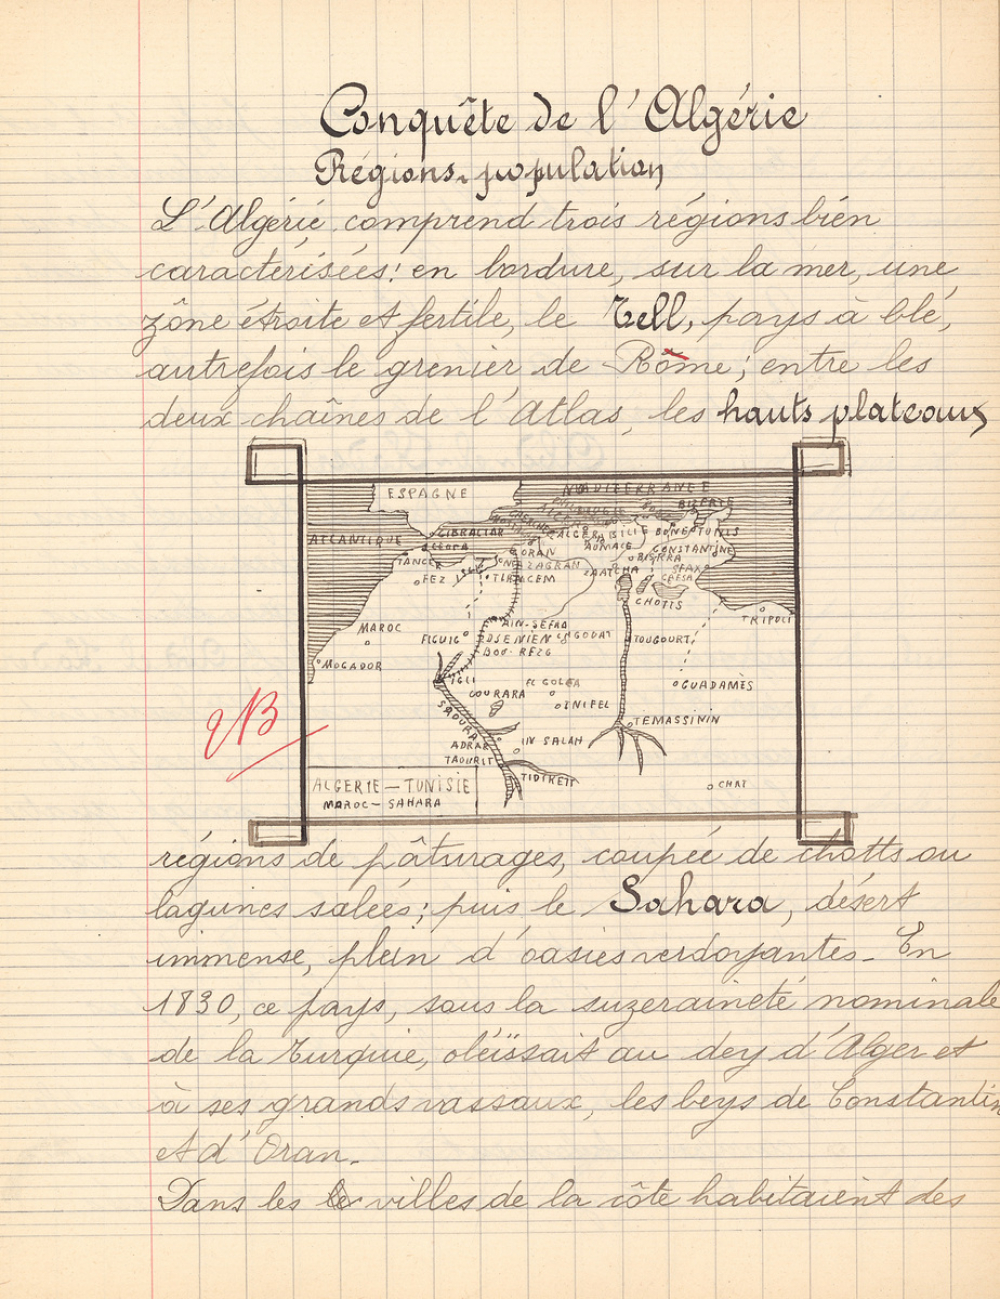 Conquête de l'Algérie
Régions, population
L'Algérie comprend trois régions bien
caractérisées: en bordure, sur la mer, une
zône étroite et fertile, le Tell, pays à blé,
autrefois le grenier de Rôme; entre les
deux chaînes de l'Atlas, les hauts plateaux
ESPAGNE
MEDITERRANEE
BIZERTE
ATLANTIQUE
GIBRALTAR
ALGER
BÔNE
TUNIS
AUMALE
CONSTANTINE
ORAN
BISKRA
TANGER
MAZAGRAN
ZAATCHA
SFAX
FEZ
TLEMCEN
CHOTTS
TRIPOLI
MAROC
AIN-SEFRA
FIGUIG
DJENIEN
BOU-REZG
TOUGOURT
MOGADOR
IGLI
EL GOLEA
GUADAMÈS
GOURARA
INIFEL
SAOURA
TEMASSININ
ADRAR
IN SALAH
TAOURIT
TIDIKELT
ALGERIE — TUNISIE
MAROC — SAHARA
GHAT
TB
régions de pâturages, coupée de chotts ou
lagunes salées; puis le Sahara, désert
immense, plein d'oasies verdoyantes. En
1830, ce pays, sous la suzeraineté nominale
de la Turquie, obéissait au dey d'Alger et
à ses grands vassaux, les beys de Constantin
et d'Oran.
Dans les villes de la côte habitaient des